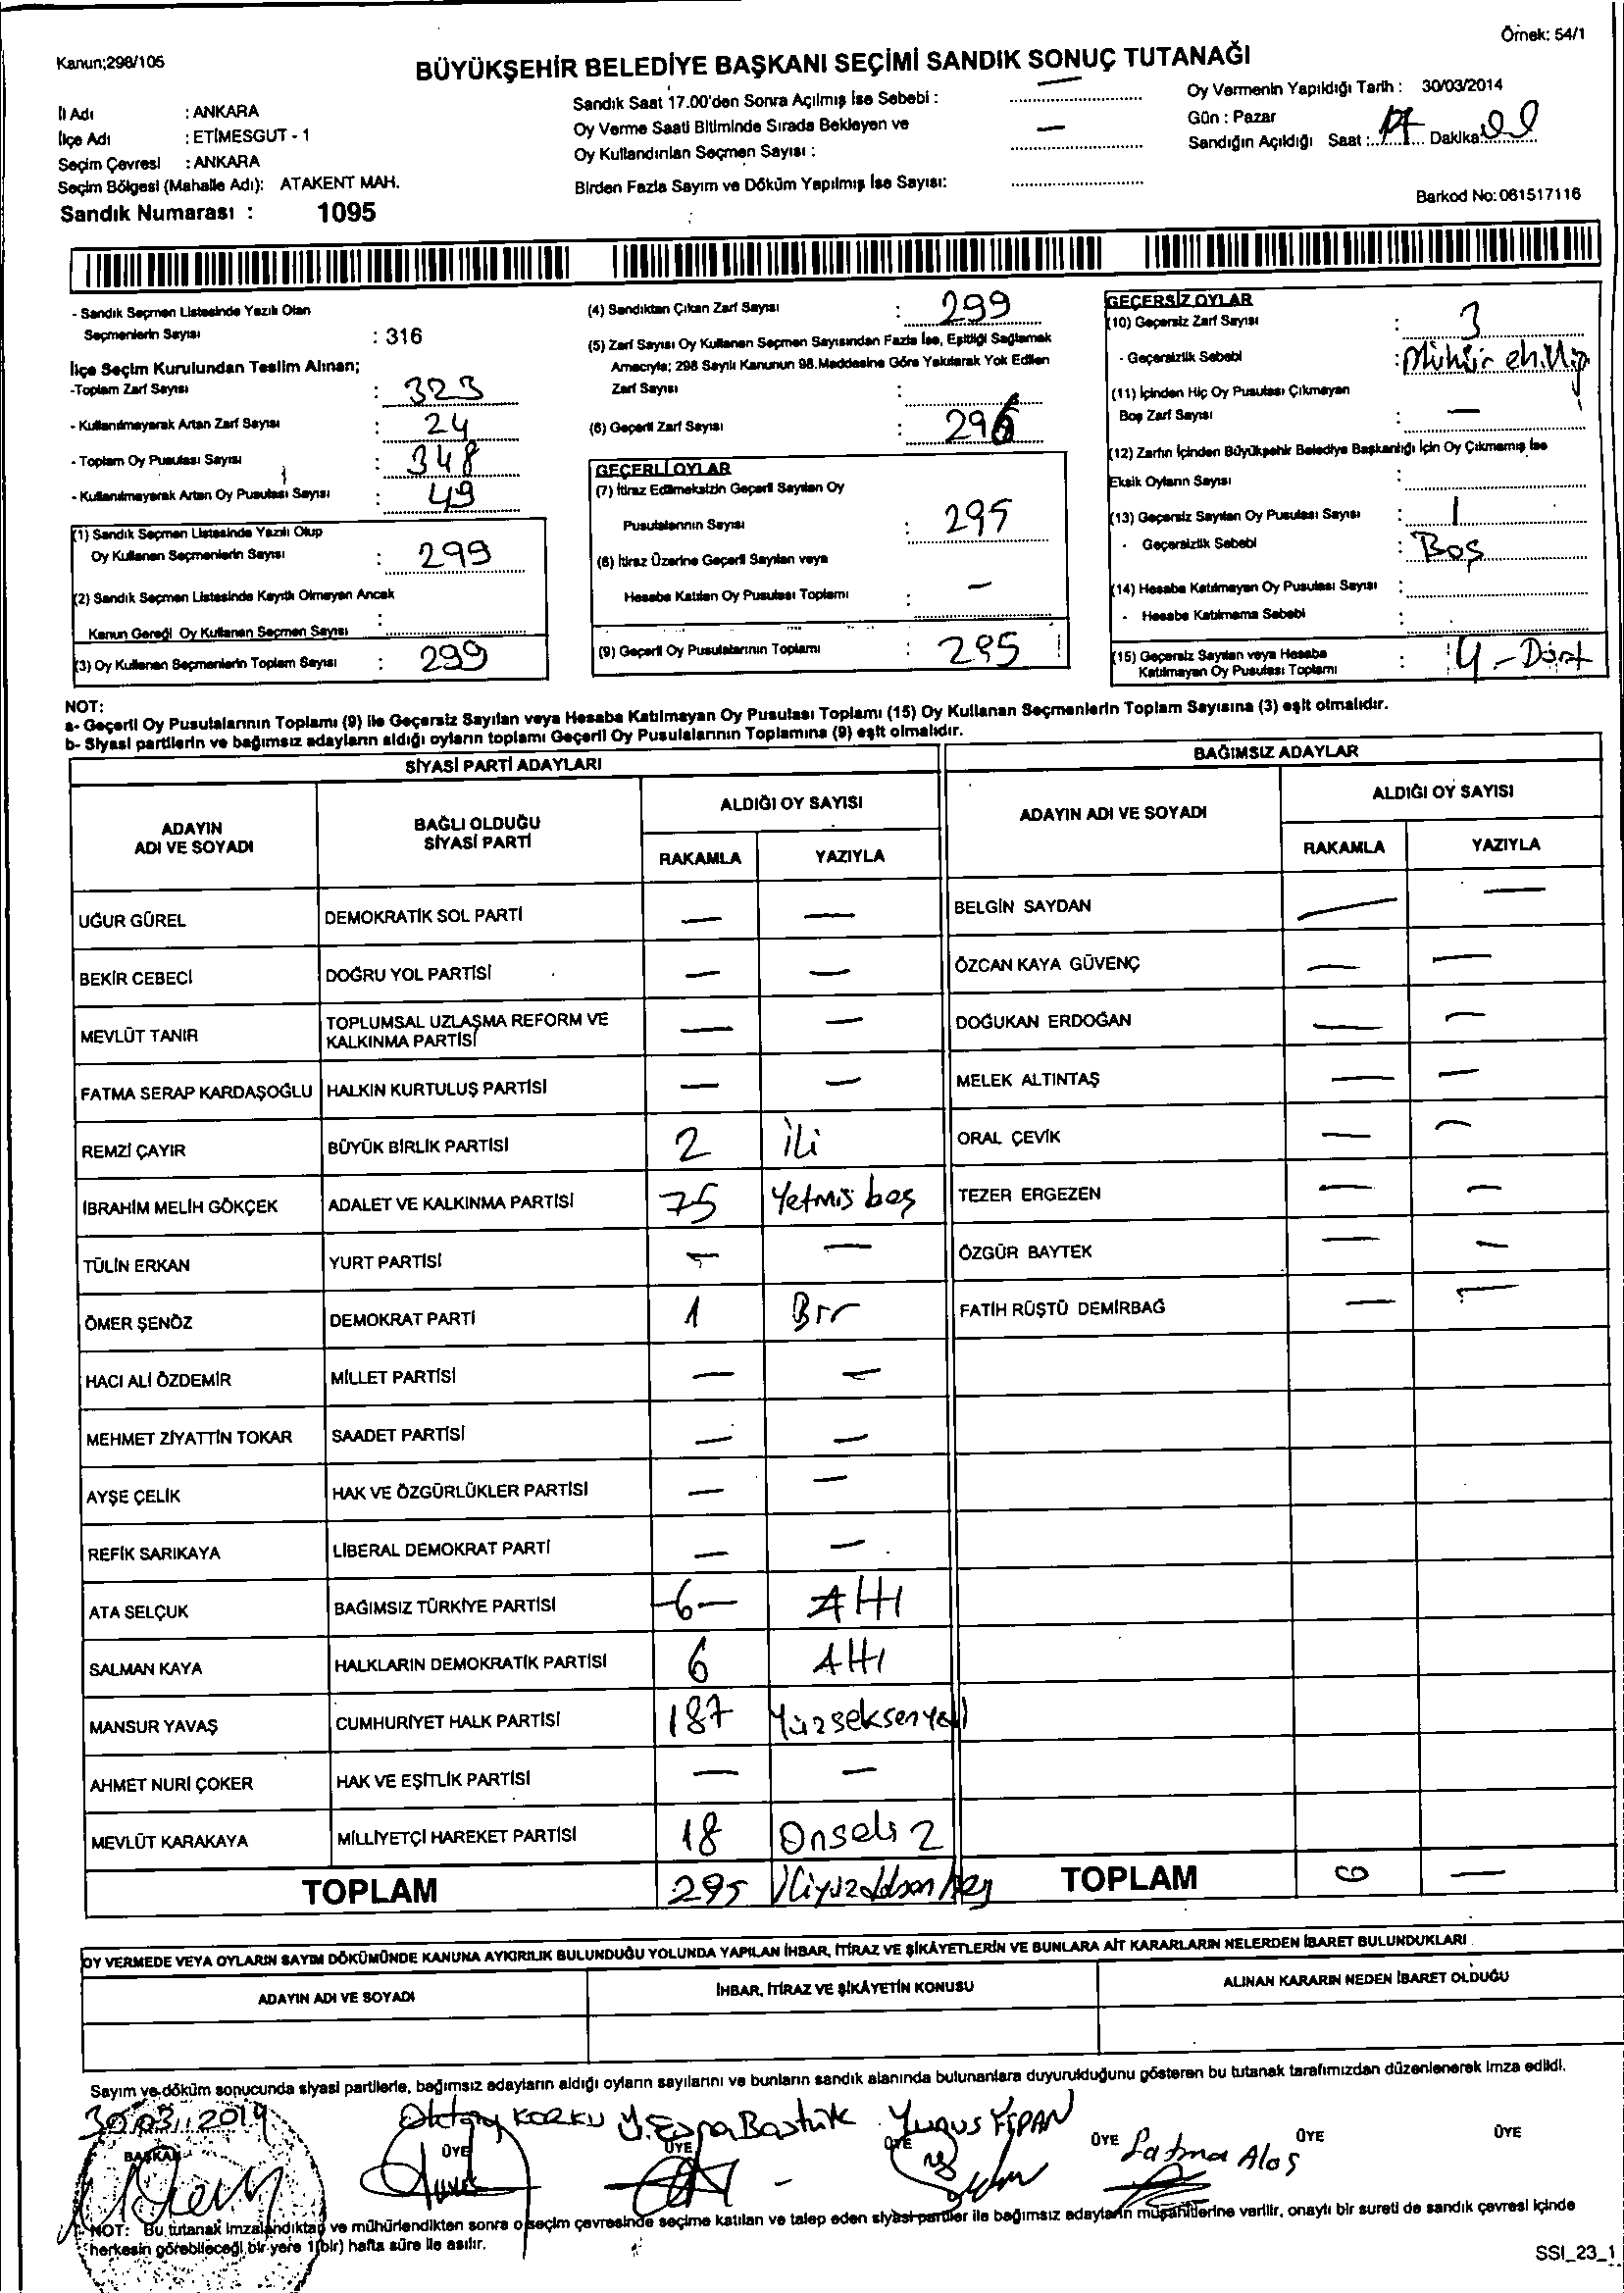 Örnek: 54/1
Kanun;298/105
BÜYÜKŞEHİR BELEDİYE BAŞKANI SEÇİMİ SANDIK SONUÇ TUTANAĞI
İl Adı : ANKARA
İlçe Adı : ETİMESGUT - 1
Seçim Çevresi : ANKARA
Seçim Bölgesi (Mahalle Adı): ATAKENT MAH.
Sandık Numarası : 1095
Sandık Saat 17.00'den Sonra Açılmış İse Sebebi : —
Oy Verme Saati Bitiminde Sırada Bekleyen ve
Oy Kullandırılan Seçmen Sayısı : —
Birden Fazla Sayım ve Döküm Yapılmış İse Sayısı:
Oy Vermenin Yapıldığı Tarih : 30/03/2014
Gün : Pazar
Sandığın Açıldığı Saat : 17 Dakika: 00
Barkod No: 061517116
- Sandık Seçmen Listesinde Yazılı Olan
Seçmenlerin Sayısı : 316
İlçe Seçim Kurulundan Teslim Alınan;
-Toplam Zarf Sayısı : 323
- Kullanılmayarak Artan Zarf Sayısı : 24
- Toplam Oy Pusulası Sayısı : 348
- Kullanılmayarak Artan Oy Pusulası Sayısı : 49
(1) Sandık Seçmen Listesinde Yazılı Olup
Oy Kullanan Seçmenlerin Sayısı : 299
(2) Sandık Seçmen Listesinde Kayıtlı Olmayan Ancak
Kanun Gereği Oy Kullanan Seçmen Sayısı :
(3) Oy Kullanan Seçmenlerin Toplam Sayısı : 299
(4) Sandıktan Çıkan Zarf Sayısı : 299
(5) Zarf Sayısı Oy Kullanan Seçmen Sayısından Fazla İse, Eşitliği Sağlamak
Amacıyla; 298 Sayılı Kanunun 98.Maddesine Göre Yakılarak Yok Edilen
Zarf Sayısı :
(6) Geçerli Zarf Sayısı : 296
GEÇERLİ OYLAR
(7) İtiraz Edilmeksizin Geçerli Sayılan Oy
Pusulalarının Sayısı : 295
(8) İtiraz Üzerine Geçerli Sayılan veya
Hesaba Katılan Oy Pusulası Toplamı : —
(9) Geçerli Oy Pusulalarının Toplamı : 295
GEÇERSİZ OYLAR
(10) Geçersiz Zarf Sayısı : 3
- Geçersizlik Sebebi : Mühür
(11) İçinden Hiç Oy Pusulası Çıkmayan
Boş Zarf Sayısı : —
(12) Zarfın İçinden Büyükşehir Belediye Başkanlığı İçin Oy Çıkmamış İse
Eksik Oyların Sayısı :
(13) Geçersiz Sayılan Oy Pusulası Sayısı : 1
- Geçersizlik Sebebi : Boş
(14) Hesaba Katılmayan Oy Pusulası Sayısı :
- Hesaba Katılmama Sebebi :
(15) Geçersiz Sayılan veya Hesaba
Katılmayan Oy Pusulası Toplamı : 4 - Dört
NOT:
a- Geçerli Oy Pusulalarının Toplamı (9) ile Geçersiz Sayılan veya Hesaba Katılmayan Oy Pusulası Toplamı (15) Oy Kullanan Seçmenlerin Toplam Sayısına (3) eşit olmalıdır.
b- Siyasi partilerin ve bağımsız adayların aldığı oyların toplamı Geçerli Oy Pusulalarının Toplamına (9) eşit olmalıdır.
SİYASİ PARTİ ADAYLARI
ADAYIN ADI VE SOYADI BAĞLI OLDUĞU SİYASİ PARTİ ALDIĞI OY SAYISI
RAKAMLA YAZIYLA
UĞUR GÜREL DEMOKRATİK SOL PARTİ — —
BEKİR CEBECİ DOĞRU YOL PARTİSİ — —
MEVLÜT TANIR TOPLUMSAL UZLAŞMA REFORM VE KALKINMA PARTİSİ — —
FATMA SERAP KARDAŞOĞLU HALKIN KURTULUŞ PARTİSİ — —
REMZİ ÇAYIR BÜYÜK BİRLİK PARTİSİ 2 iki
İBRAHİM MELİH GÖKÇEK ADALET VE KALKINMA PARTİSİ 75 Yetmiş beş
TÜLİN ERKAN YURT PARTİSİ — —
ÖMER ŞENÖZ DEMOKRAT PARTİ 1 Bir
HACI ALİ ÖZDEMİR MİLLET PARTİSİ — —
MEHMET ZİYATTİN TOKAR SAADET PARTİSİ — —
AYŞE ÇELİK HAK VE ÖZGÜRLÜKLER PARTİSİ — —
REFİK SARIKAYA LİBERAL DEMOKRAT PARTİ — —
ATA SELÇUK BAĞIMSIZ TÜRKİYE PARTİSİ -6- Altı
SALMAN KAYA HALKLARIN DEMOKRATİK PARTİSİ 6 Altı
MANSUR YAVAŞ CUMHURİYET HALK PARTİSİ 187 Yüzseksenyedi
AHMET NURİ ÇOKER HAK VE EŞİTLİK PARTİSİ — —
MEVLÜT KARAKAYA MİLLİYETÇİ HAREKET PARTİSİ 18 Onsekiz
TOPLAM 295 ikiyüzdoksan beş
BAĞIMSIZ ADAYLAR
ADAYIN ADI VE SOYADI ALDIĞI OY SAYISI
RAKAMLA YAZIYLA
BELGİN SAYDAN — —
ÖZCAN KAYA GÜVENÇ — —
DOĞUKAN ERDOĞAN — —
MELEK ALTINTAŞ — —
ORAL ÇEVİK — —
TEZER ERGEZEN — —
ÖZGÜR BAYTEK — —
FATİH RÜŞTÜ DEMİRBAĞ — —
TOPLAM 0 —
OY VERMEDE VEYA OYLARIN SAYIM DÖKÜMÜNDE KANUNA AYKIRILIK BULUNDUĞU YOLUNDA YAPILAN İHBAR, İTİRAZ VE ŞİKÂYETLERİN VE BUNLARA AİT KARARLARIN NELERDEN İBARET BULUNDUKLARI
ADAYIN ADI VE SOYADI İHBAR, İTİRAZ VE ŞİKÂYETİN KONUSU ALINAN KARARIN NEDEN İBARET OLDUĞU
Sayım ve döküm sonucunda siyasi partilerle, bağımsız adayların aldığı oyların sayılarını ve bunların sandık alanında bulunanlara duyurulduğunu gösteren bu tutanak tarafımızdan düzenlenerek imza edildi.
30.03.2014 Oktay KORKU Yunus
BAŞKAN ÜYE ÜYE ÜYE ÜYE Fatma ÜYE ÜYE
NOT: Bu tutanak imzalandıktan ve mühürlendikten sonra o seçim çevresinde seçime katılan ve talep eden siyasi partiler ile bağımsız adayların müşahitlerine verilir, onaylı bir sureti de sandık çevresi içinde
herkesin görebileceği bir yere 1(bir) hafta süre ile asılır.
SSI_23_1